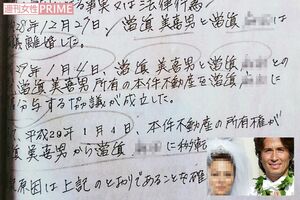 週刊女性PRIME
事実又は法律行為
28年12月27日、當濱 美喜男と當濱 は
議離婚した。
29年1月4日、當濱 美喜男と當濱 との
美喜男所有の本件不動産を當濱 に
分与する協議が成立した。
、平成29年1月4日、本件不動産の所有権が
濱 美喜男から當濱 に移転
原因は上記のとおりであることを確